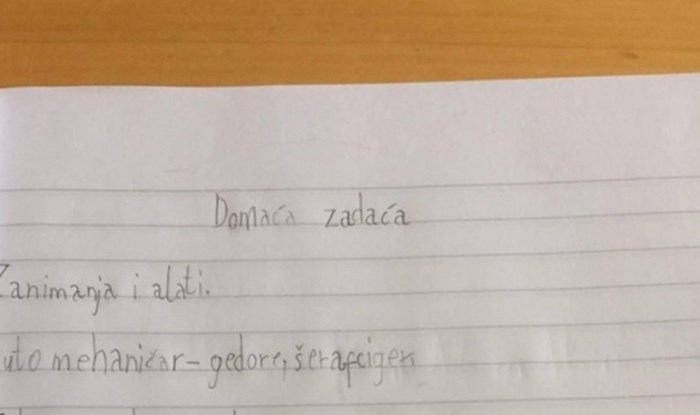 Domaća zadaća
Zanimanja i alati.
uto mehaničar - gedore, šerafciger